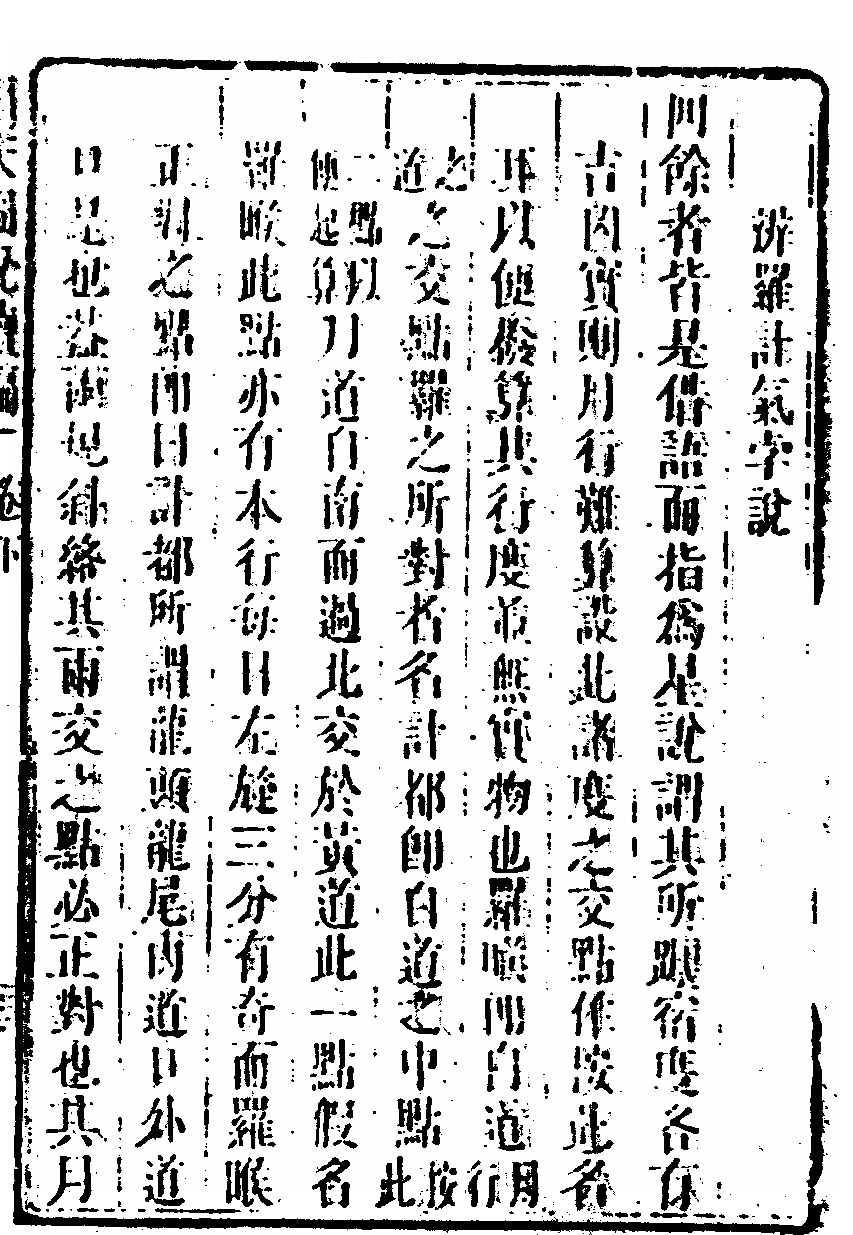 辨羅計氣孛說
四餘者皆是借語而指為星說謂其所躔宿度各有
吉凶實則月行難算設此諸度之交點作按此名
耳以便發算其行度並無實物也羅㬋即白道月行
之道之交點羅之所對者名計都即白道之中點按此
二點以便起算月道自南而過北交於黃道此一點假名
羅㬋此點亦有本行每日左旋三分有奇而羅㬋
正對之點即曰計都所謂龍頭龍尾內道口外道
口是也蓋兩軌斜絡其兩交之點必正對也其月